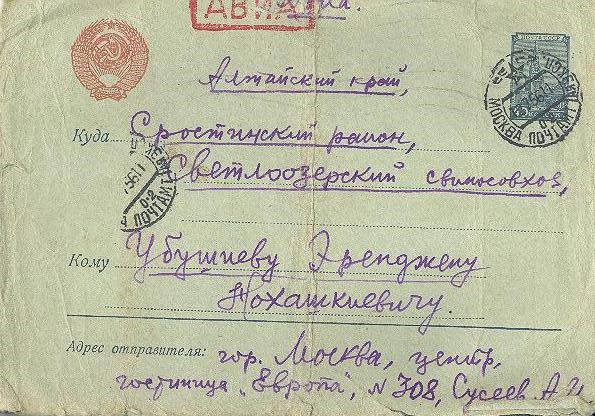 АВИА
Авиа.
ПОЧТА СССР
Алтайский край,
Куда Сростинский район,
Светлоозерский свиносовхоз,
МОСКВА ПОЧТАМТ
ПОЧТАМТ
Кому Убушиеву Эренджену
Нохашкиевичу.
Адрес отправителя: гор. Москва, центр,
гостиница „Европа", N 708, Сусеев А.И